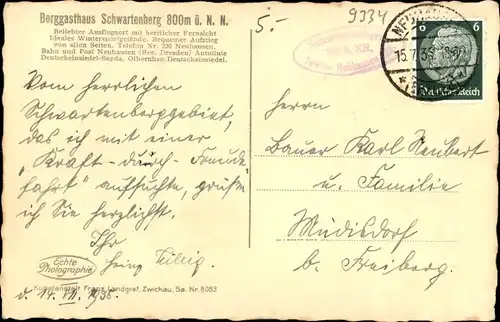 Berggasthaus Schwartenberg 800m ü. N. N.
Beliebter Ausflugsort mit herrlicher Fernsicht
Ideales Wintersportgelände. Bequemer Aufstieg
von allen Seiten. Telefon Nr. 230 Neuhausen.
Bahn und Post Neuhausen (Bez. Dresden) Autolinie
Deutscheinsiedel-Sayda, Olbernhau-Deutscheinsiedel.
5.-
9334
15.7.36
6 6
Deutsches Reich
Vom herrlichen
Schwartenberggebiet,
das ich mit einer
"Kraft-durch-Freude
fahrt" aufsuchte, grüße
ich Sie herzlichst.
Ihr
Heinz
d. 14. VII. 1936.
Herrn
Bauer Karl Neubert
u. Familie
Müdisdorf
b. Freiberg.
Echte
Photographie
Kunstanstalt Franz Landgraf, Zwickau, Sa. Nr. 6083